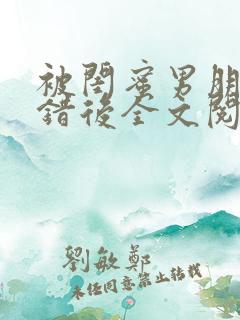 被閨蜜男朋
錯後全文閱
劉敏鄭
未經同意禁止轉載